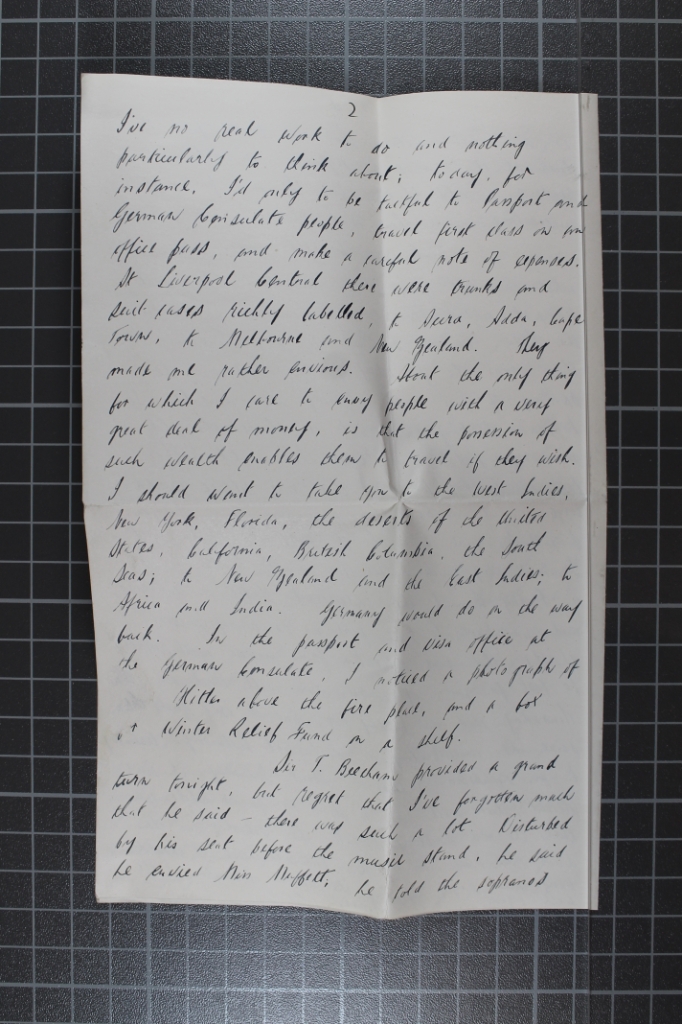 2
I've no real work to do and nothing
particularly to think about; today, for
instance, I'd only to be tactful to Passport and
German Consulate people, travel first class on an
office pass, and make a careful note of expenses.
At Liverpool Central there were trunks and
suit cases richly labelled, to Suva, Cape
Town, to Melbourne and New Zealand. They
made me rather envious. About the only thing
for which I care to envy people with a very
great deal of money, is that the possession of
such wealth enables them to travel if they wish.
I should want to take you to the West Indies,
New York, Florida, the deserts of the United
States, California, British Columbia, the South
Seas; to New Zealand and the East Indies; to
Africa and India. Germany would do on the way
back. In the passport and visa office at
the German Consulate, I noticed a photograph of
Hitler above the fire place, and a box
Winter Relief Fund on a shelf.
Sir T. Beecham provided a grand
turn tonight, but regret that I've forgotten much
that he said – there was such a lot. Disturbed
by his seat before the music stand, he said
he envied Miss Muffett; he told the sopranos